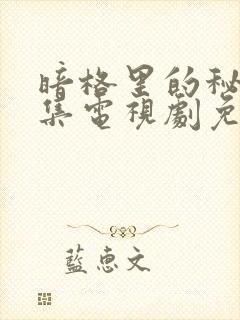 暗格里的秘
集電視劇免
藍惠文